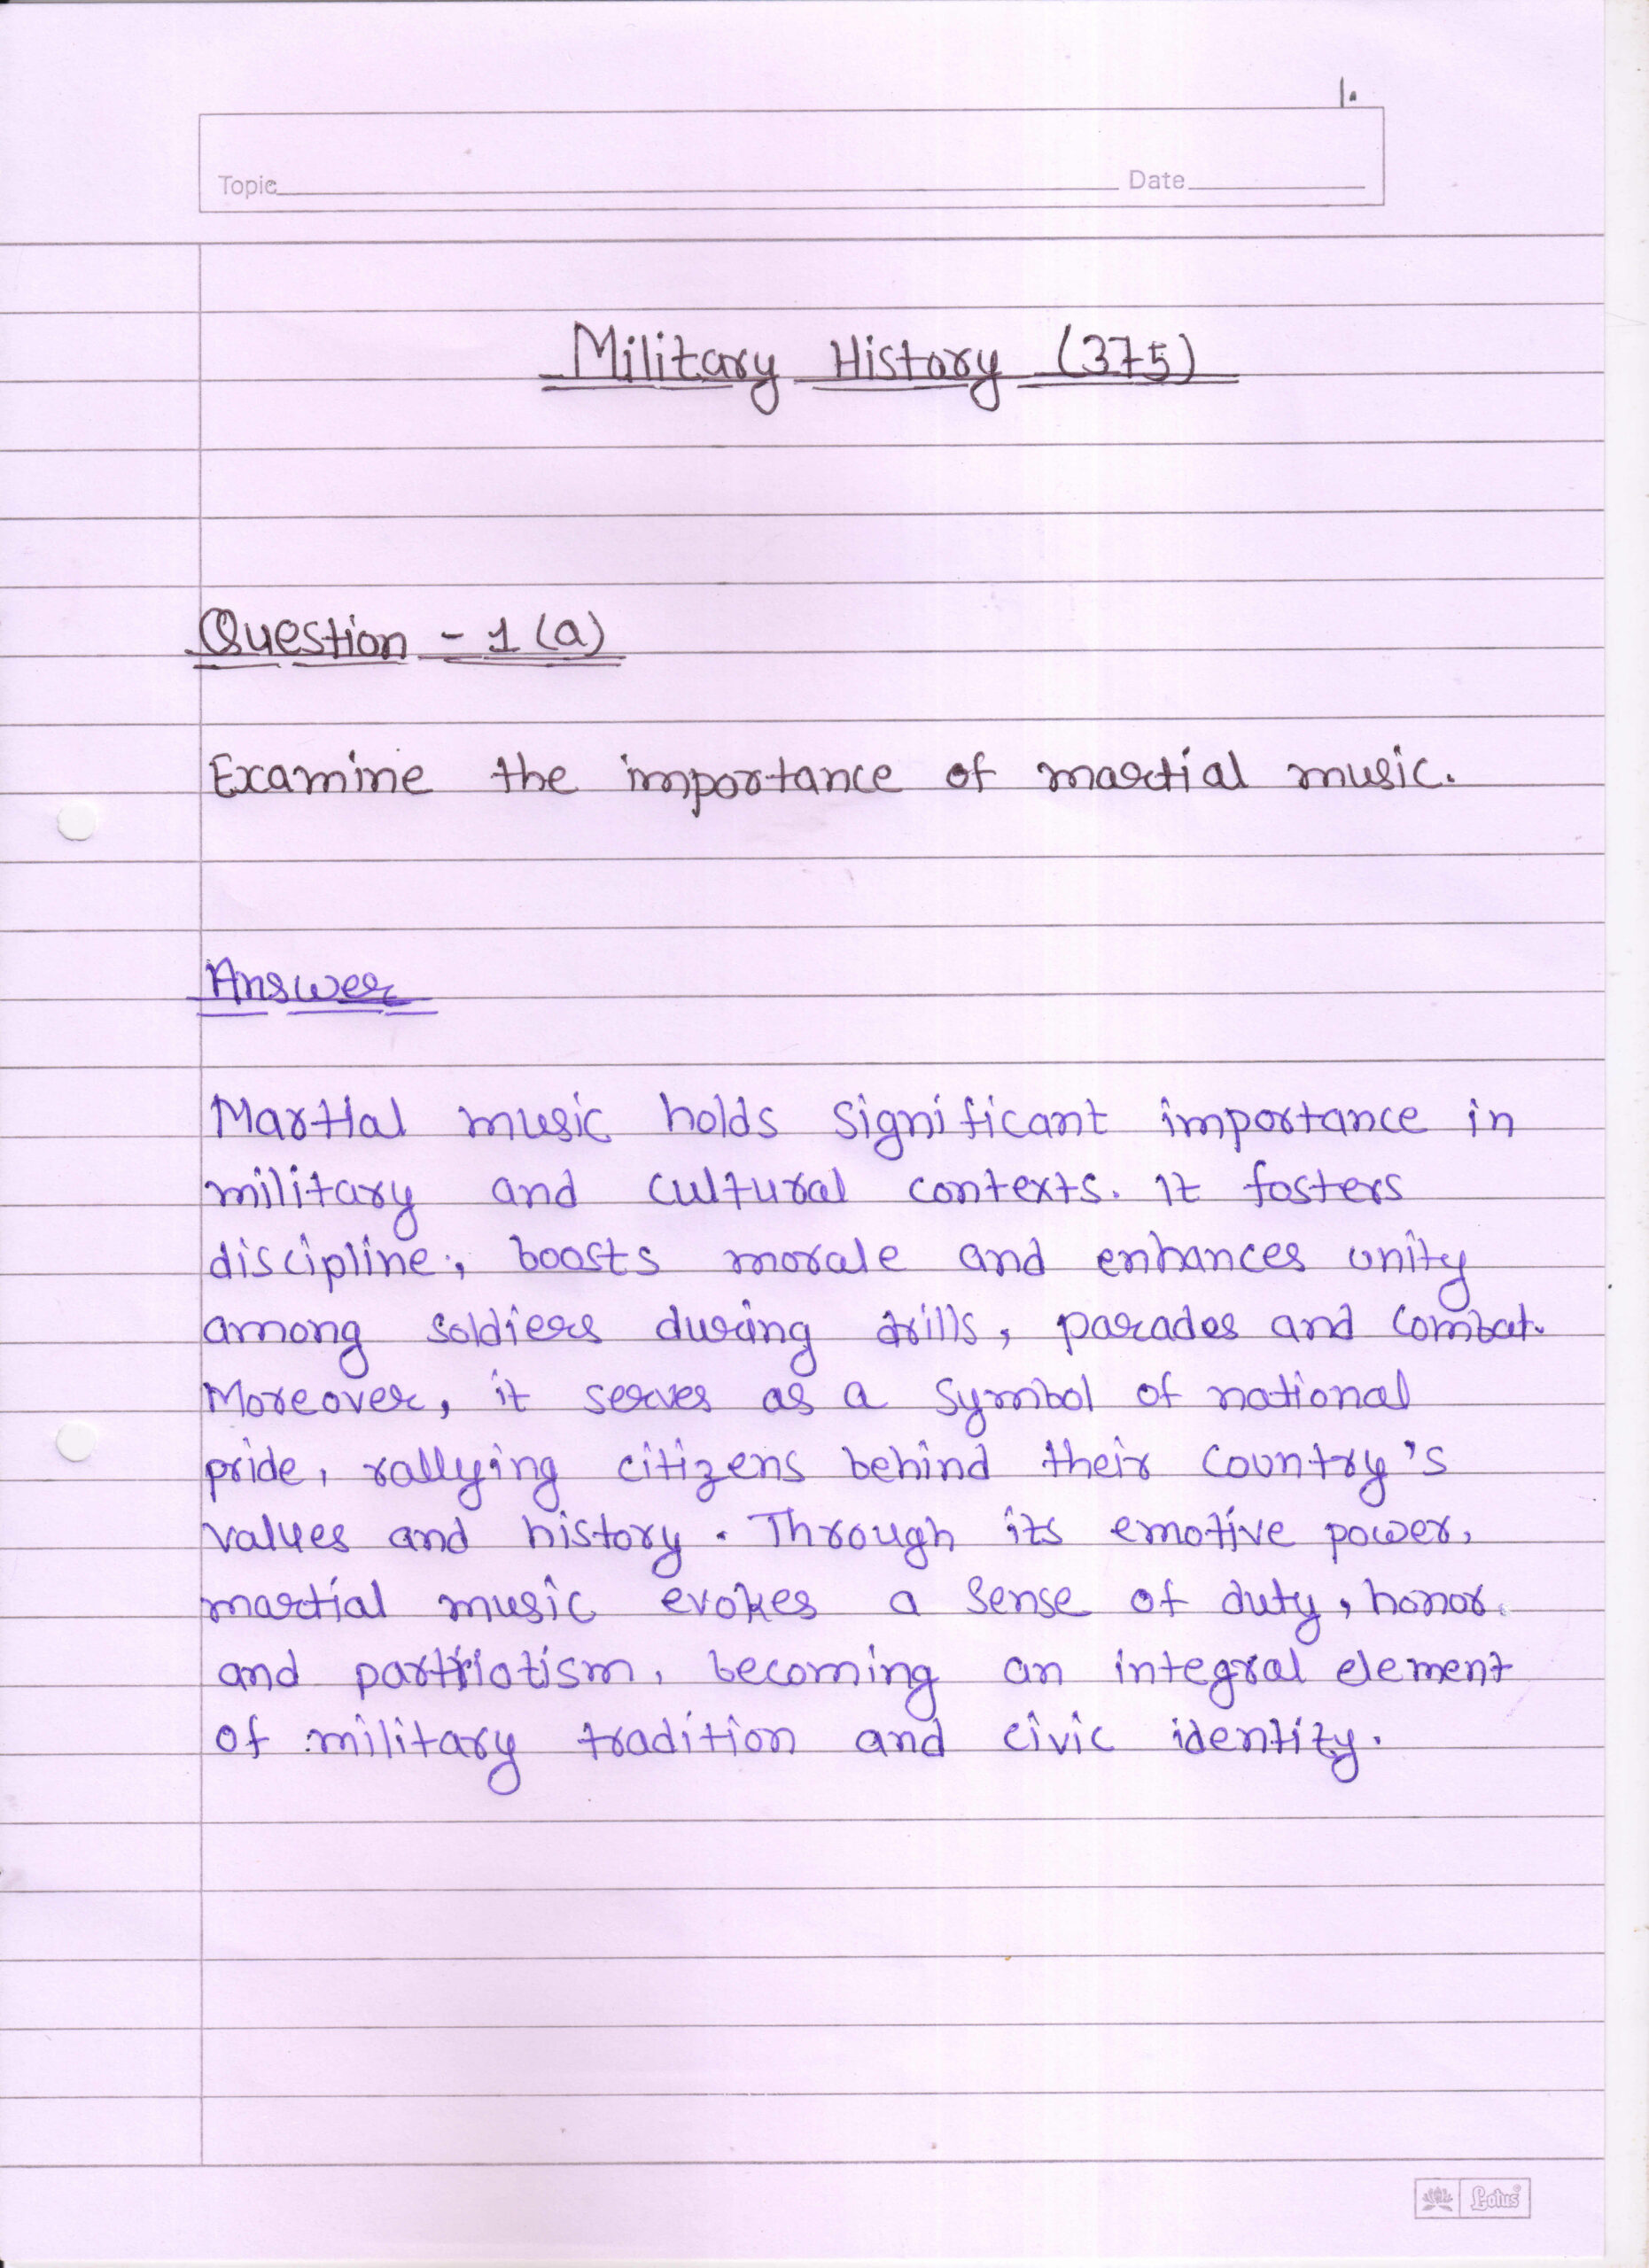 1.
Topic Date
Military History (375)
Question - 1 (a)
Examine the importance of martial music.
Answer
Martial music holds significant importance in
military and cultural contexts. It fosters
discipline, boosts morale and enhances unity
among soldiers during drills, parades and combat.
Moreover, it serves as a symbol of national
pride, rallying citizens behind their country's
values and history. Through its emotive power,
martial music evokes a sense of duty, honor
and partriotism, becoming an integral element
of military tradition and civic identity.
Lotus